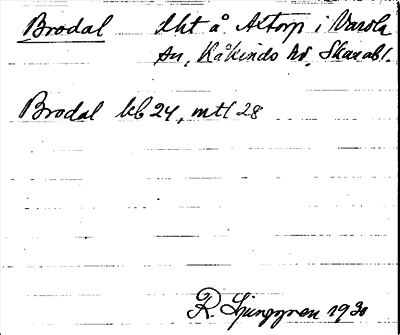 Brodal dht å Attorp i Varola
sn, Kåkinds hd Skarabl.
Brodal kb 24, mtl 28
R. Ljunggren 1930